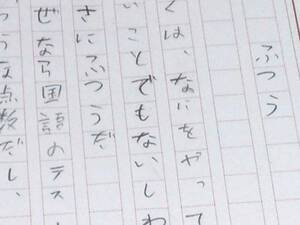 ふつう
くは、なにをやって
いことでもないしわ
さにふつうだ
ぜなら国語のテス
つうな点数だし、